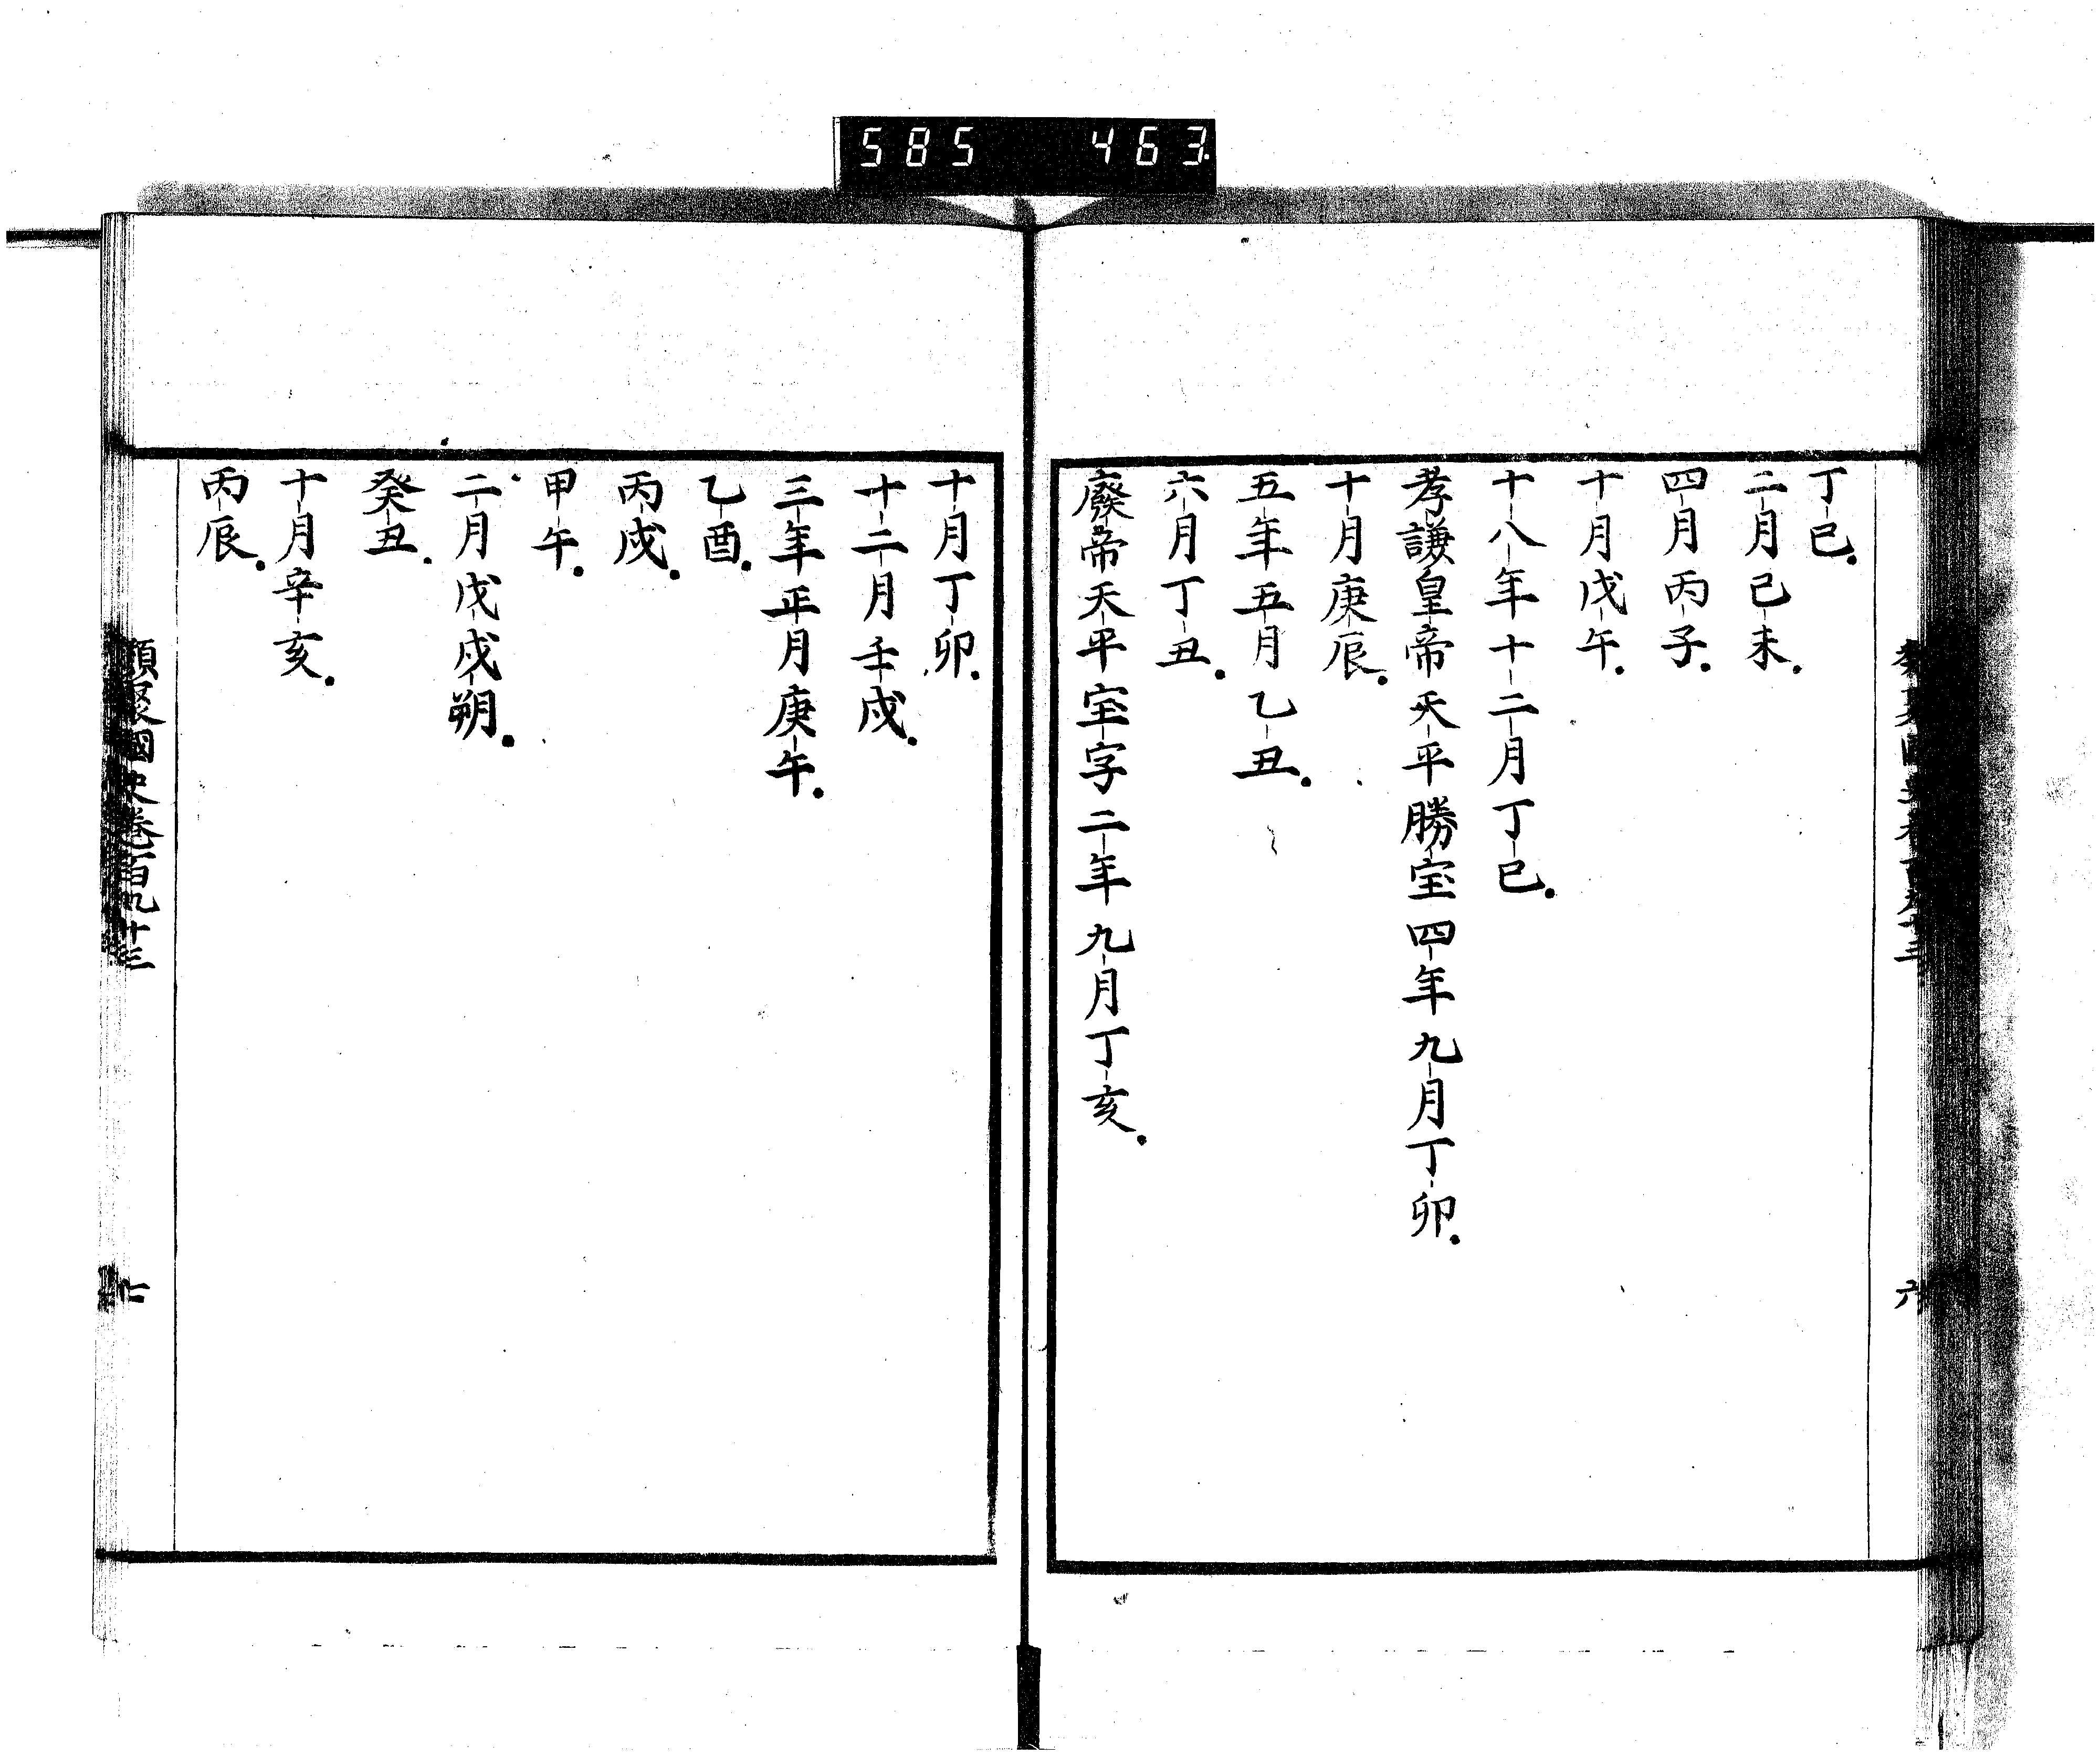 585 463
丁巳.
二月己未.
四月丙子.
十月戊午.
十八年十二月丁巳.
孝謙皇帝天平勝宝四年九月丁卯.
十月庚辰.
五年五月乙丑.
六月丁丑.
廢帝天平宝字二年九月丁亥.
六
十月丁卯.
十二月壬戌.
三年正月庚午.
乙酉.
丙戌.
甲午.
二月戊戌朔.
癸丑.
十月辛亥.
丙辰.
類聚國史卷百九十三
七